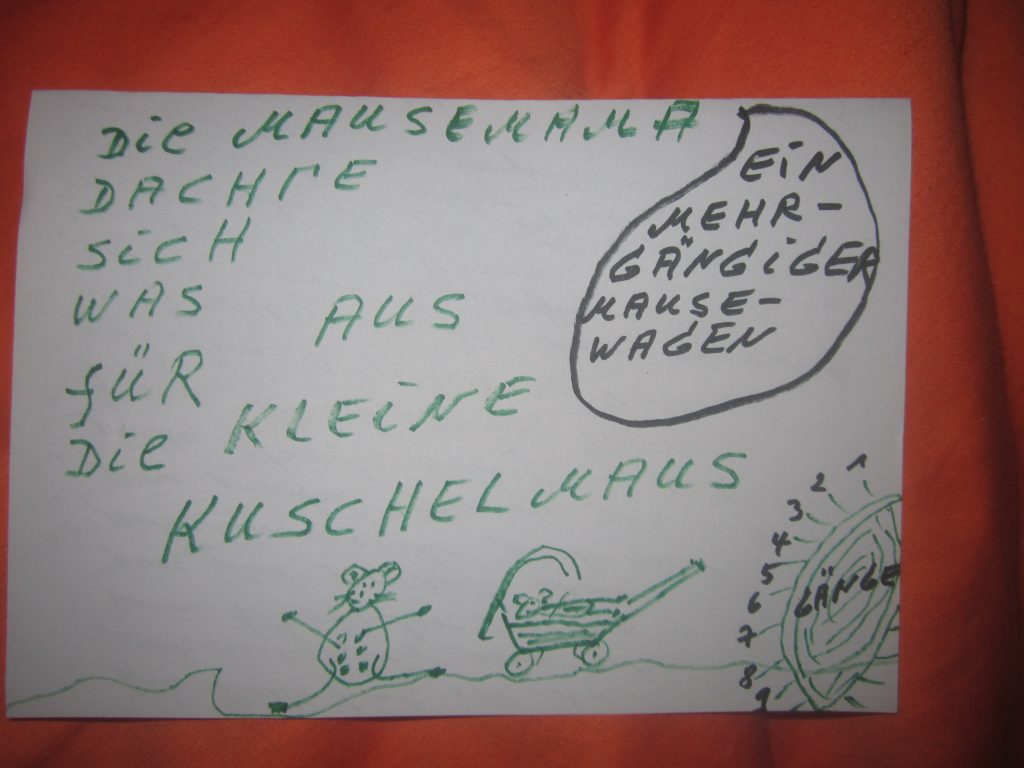 Die MAUSEMAMA
DACHTE
SiCH
WAS AUS
füR
Die KLEiNE
KUSCHELMAUS
EiN
MEHR-
GÄNGiGER
MAUSE-
WAGEN
1
2
3
4
5
6
7
8
9
GÄNGE